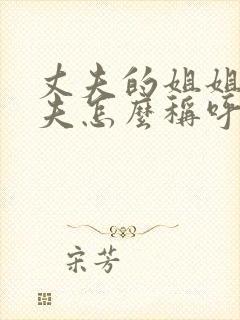 丈夫的姐姐
夫怎麼稱呼
宋芳